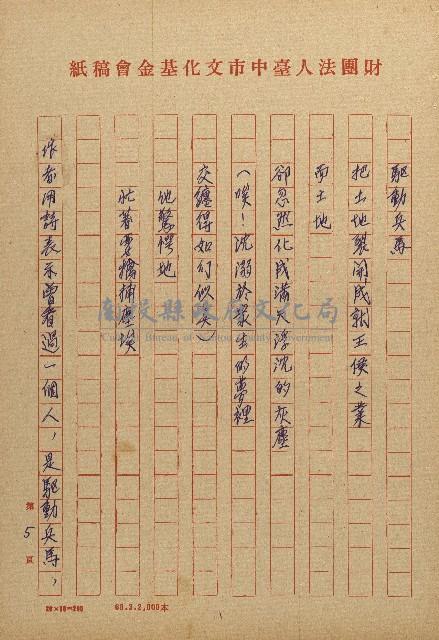 財團法人臺中市文化基金會稿紙
驅動兵馬
把土地裂開,成就王侯之業
而土地
卻忽然化成滿天浮沈的灰塵
(唉!沈溺於眾生的夢裡
交纏得如幻似真)
他驚愕地
忙著要擒捕塵埃
作者用詩表示曾看過一個人,是驅動兵馬,
第5頁
南投縣政府文化局
Cultural Bureau of Nantou County Government
20×10=200
68.3.2,000本